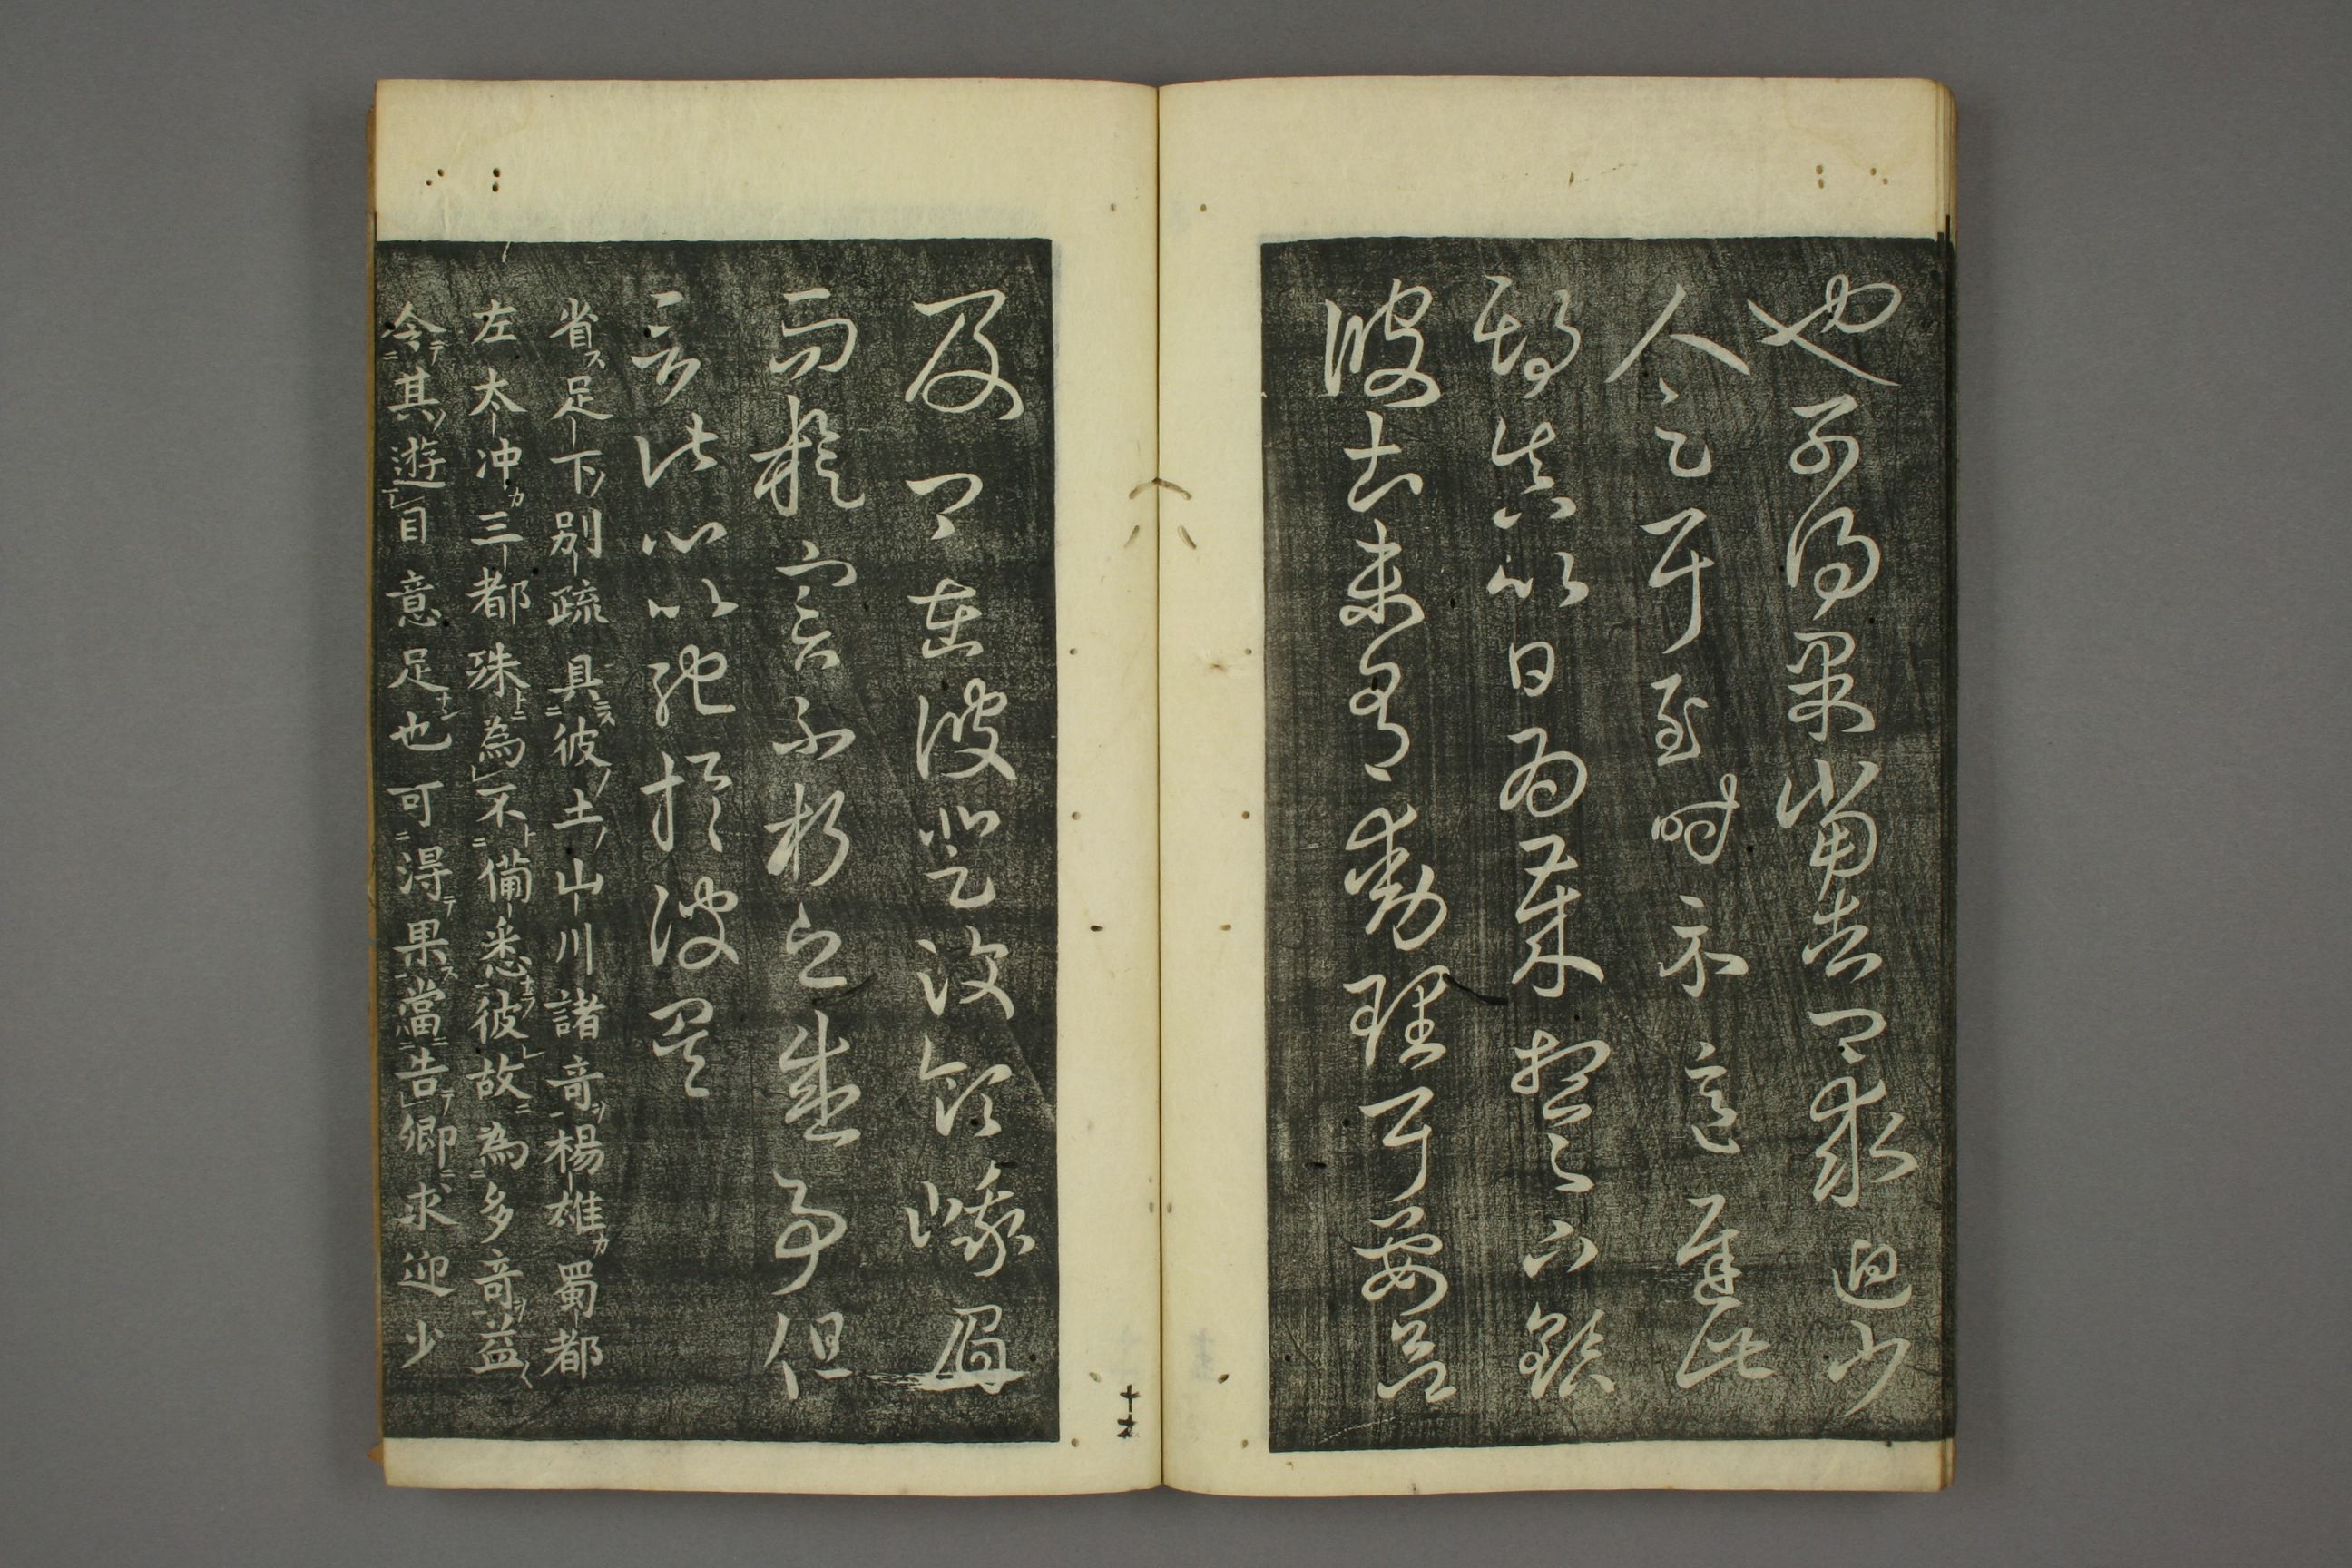 也可得果當告卿求迎少
人足耳至時示意遲此
期真以日為歲想足下鎮
彼土未有動理耳要欲
及卿在彼登汶領峨眉
而旋實不朽之盛事但
言此心以馳於彼矣
省足下別疏具彼土山川諸竒楊雄蜀都
左太冲三都殊為不備悉彼故為多竒益
令其遊目意足也可得果當告卿求迎少
十六